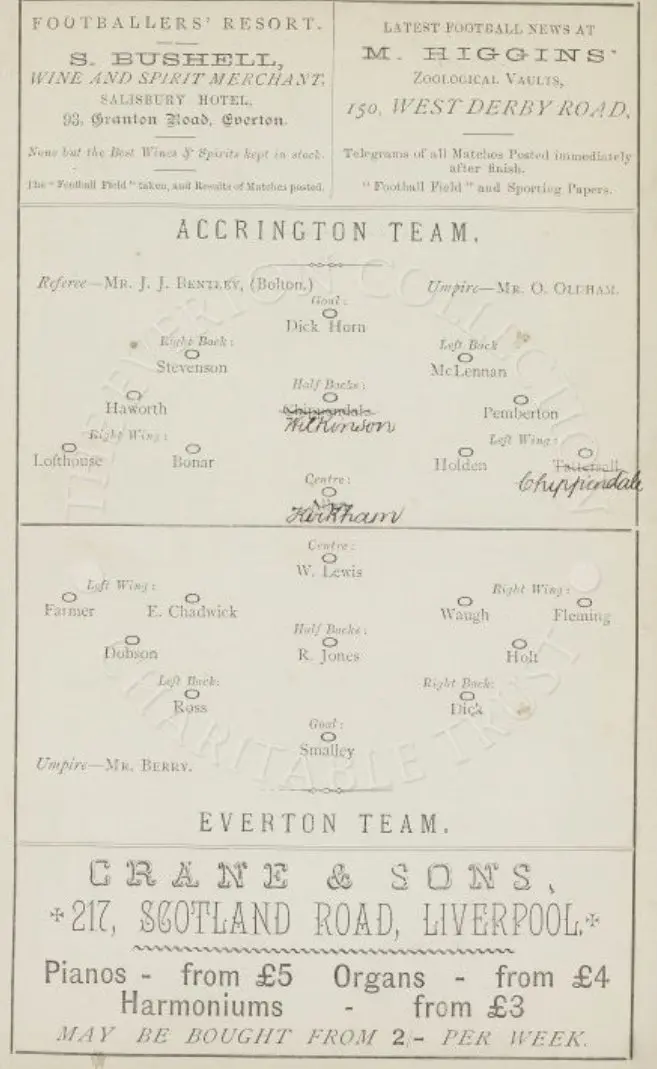 FOOTBALLERS' RESORT.
S. BUSHELL,
WINE AND SPIRIT MERCHANT,
SALISBURY HOTEL,
93, Granton Road, Everton.
None but the Best Wines & Spirits kept in stock.
The "Football Field" taken, and Results of Matches posted.
LATEST FOOTBALL NEWS AT
M. HIGGINS'
ZOOLOGICAL VAULTS,
150, WEST DERBY ROAD,
Telegrams of all Matches Posted immediately
after finish.
"Football Field" and Sporting Papers.
ACCRINGTON TEAM.
Referee—MR. J. J. BENTLEY, (Bolton.)
Umpire—MR. O. OLDHAM.
Goal:
Dick Horn
Right Back:
Stevenson
Left Back
McLennan
Half Backs:
Haworth
Chippendale
Wilkinson
Pemberton
Right Wing:
Lofthouse
Bonar
Left Wing:
Holden
Tattersall
Chippendale
Centre:
Kirkham
Centre:
W. Lewis
Left Wing:
Farmer
E. Chadwick
Right Wing:
Waugh
Fleming
Half Backs:
Dobson
R. Jones
Holt
Left Back:
Ross
Right Back:
Dick
Goal:
Smalley
Umpire—MR. BERRY.
EVERTON TEAM.
CRANE & SONS,
217, SCOTLAND ROAD, LIVERPOOL
Pianos - from £5 Organs - from £4
Harmoniums - from £3
MAY BE BOUGHT FROM 2/- PER WEEK.
THE EVERTON COLLECTION
CHARITABLE TRUST